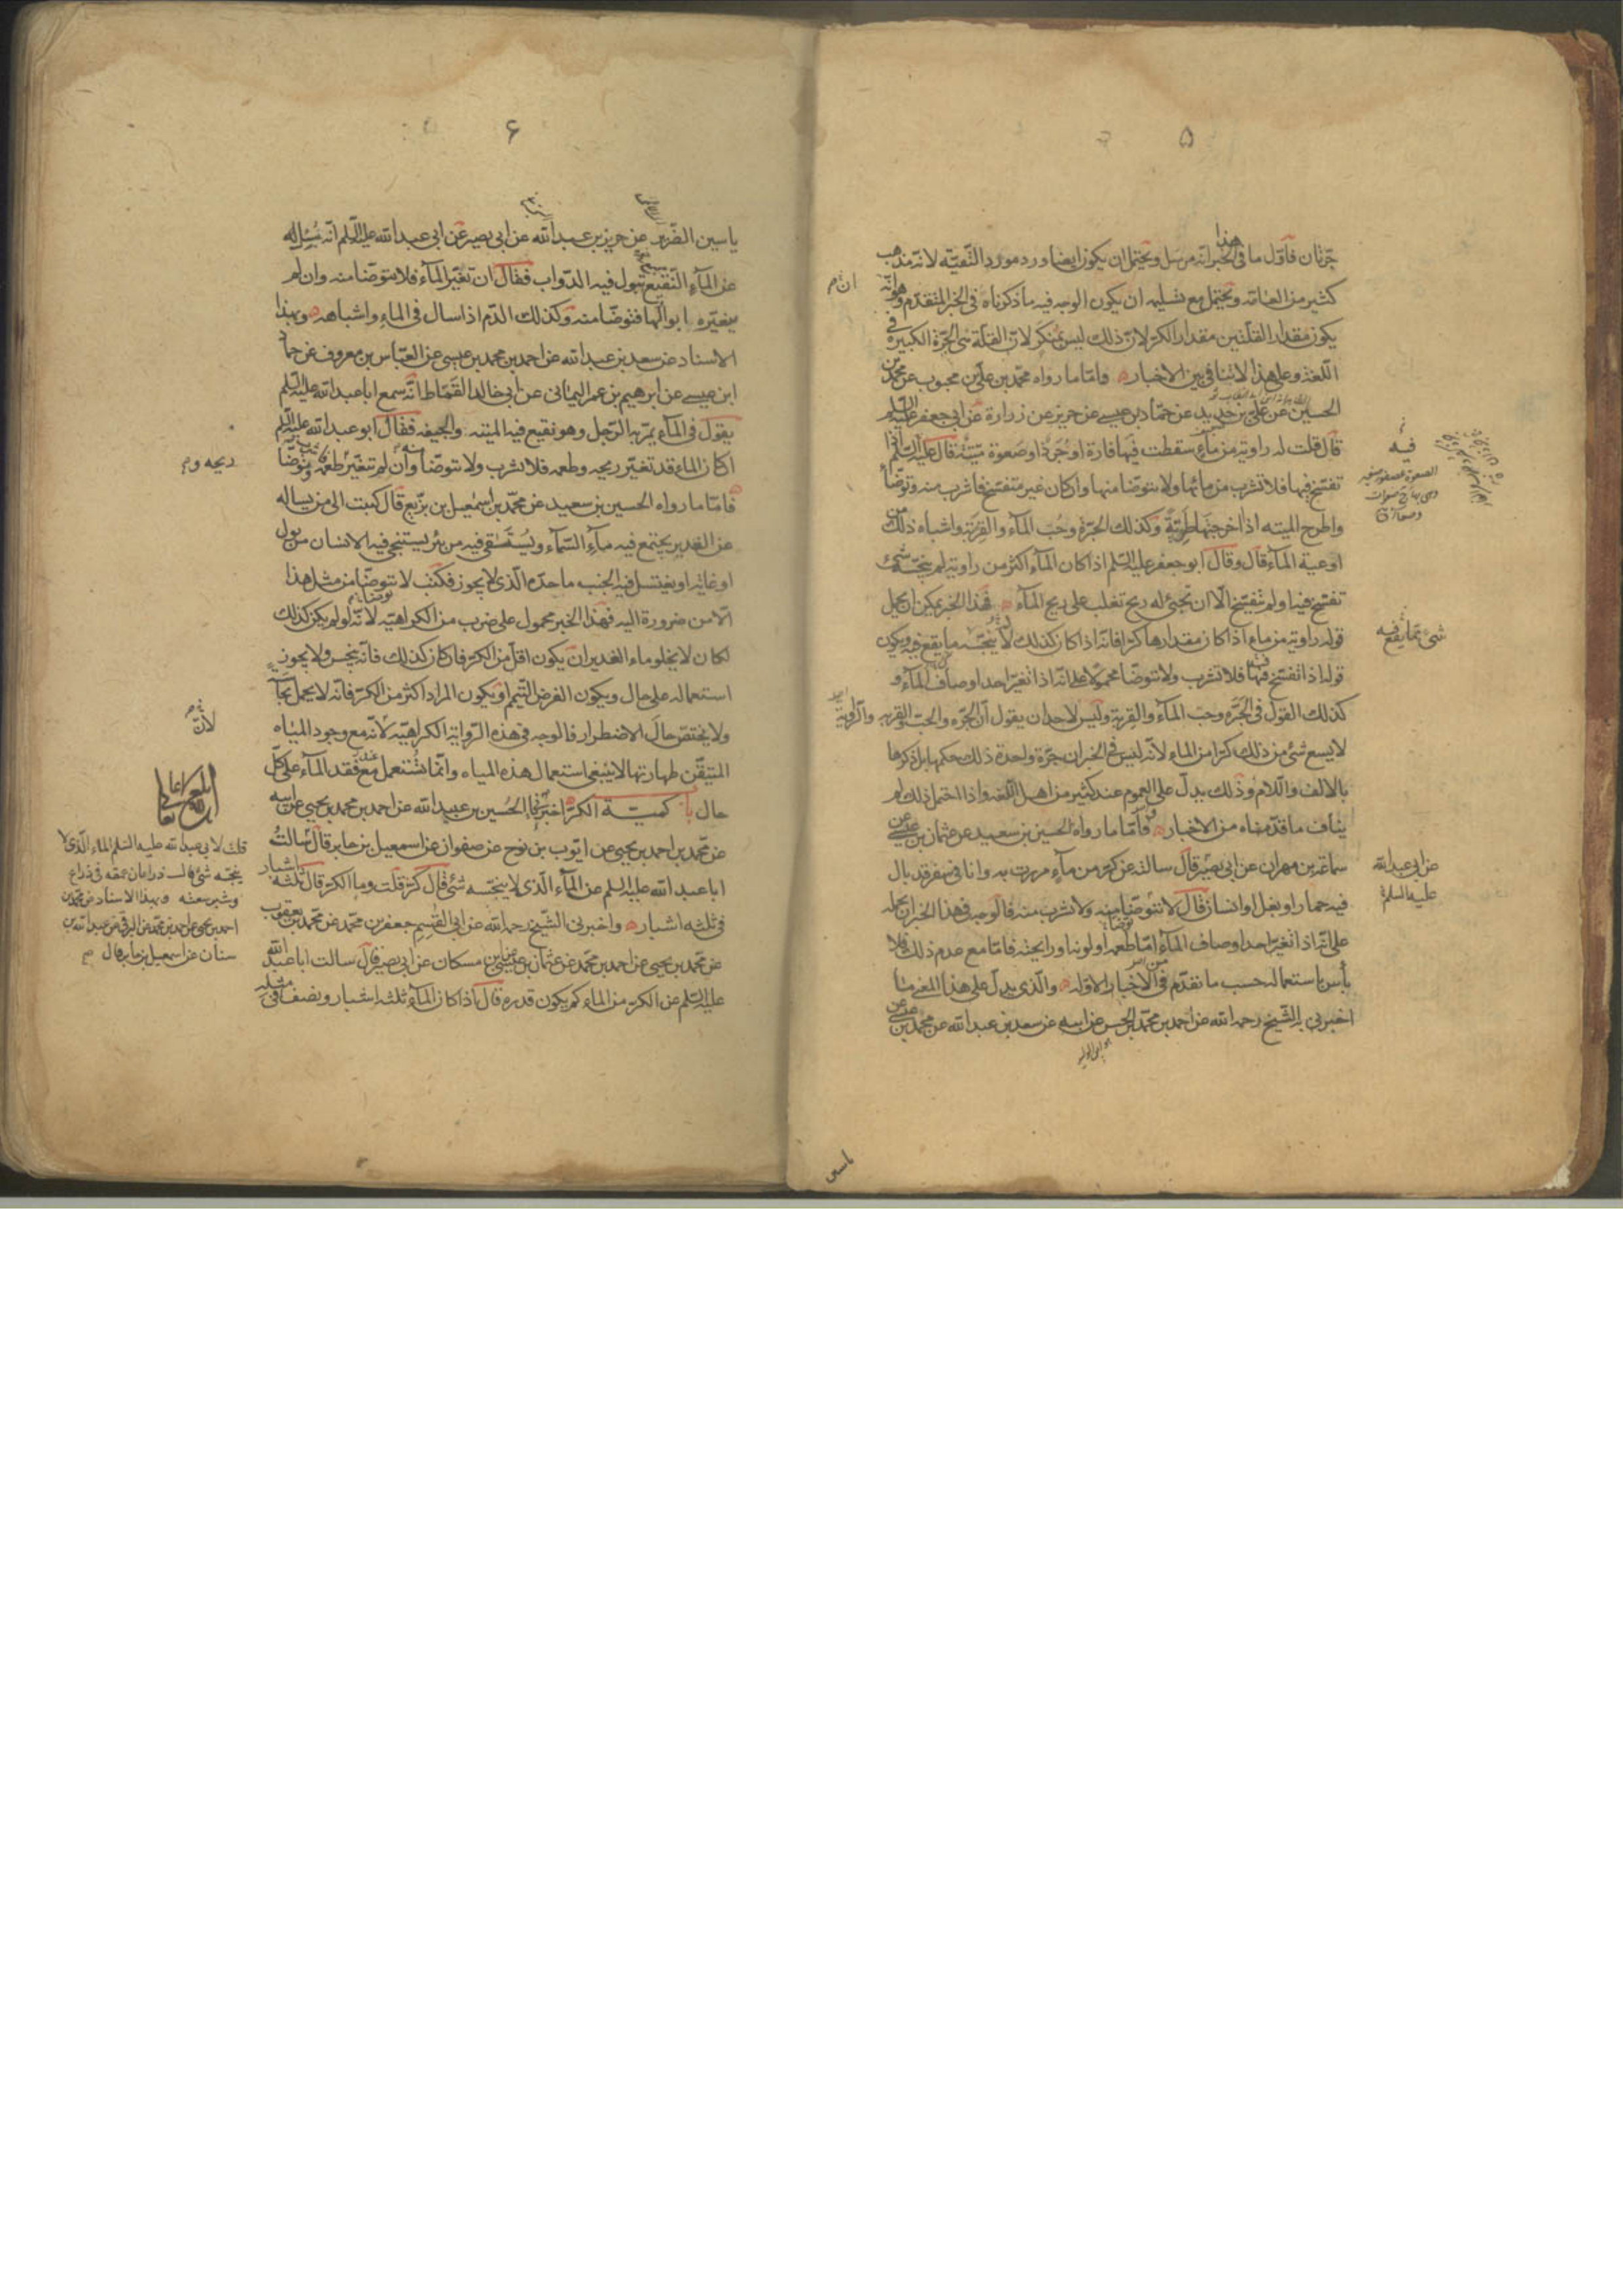 ۵
جرّتان فاوّل ما فى هذا الخبر انّه مرسل ويحتمل ان يكون ايضا ورد مورد التّقيّة لانّه مذهب
كثير من العامّة ويحتمل مع تسليمه ان يكون الوجه فيه ما ذكرناه فى الخبر المتقدّم وهو انّه
يكون مقدار القلّتين مقدار الكرّ لانّ ذلك ليس بمنكر لانّ القلّة هى الجرّة الكبيرة فى
اللّغة وعلى هذا لا تنافى بين الاخبار وامّا ما رواه محمّد بن علىّ بن محبوب عن محمّد بن
الحسين عن علىّ بن حديد عن حمّاد بن عيسى عن حريز عن زرارة عن ابى جعفر عليه السّلم
قال قلت له راوية من ماء سقطت فيها فارة او جرذ او صعوة ميّتة قال عليه السّلم اذا
تفسّخ فيها فلا تشرب من مائها ولا تتوضّا منها وان كان غير متفسّخ فاشرب منه وتوضّأ
واطرح الميته اذا اخرجتها طريّة وكذلك الجرّة وحبّ المآء والقربة واشباه ذلك من
اوعية المآء قال وقال ابو جعفر عليه السّلم اذا كان المآء اكثر من راوية لم ينجّسه شىء
تفسّخ فيه او لم يتفسّخ الّا ان تجىء له ريح تغلب على ريح المآء فهذا الخبر يمكن ان يحمل
قوله راوية من ماء اذا كان مقدارها كرّا فانّه اذا كان كذلك لا ينجّسه ما يقع فيه ويكون
قوله اذا تفسّخ فيها فلا تشرب ولا تتوضّا محمولا على انّه اذا تغيّر احد اوصاف المآء و
كذلك القول فى الجرّه وحبّ المآء والقربة وليس لاحد ان يقول انّ الجرّه والحبّ والقربه والرّاوية
لا يسع شىء من ذلك كرّا من الماء لانّه ليس فى الخبر ان جرّة واحدة ذلك حكمها بل ذكرها
بالالف واللّام وذلك يدلّ على العموم عند كثير من اهل اللّغة واذا احتمل ذلك لم
يناف ما قدّمناه من الاخبار فامّا ما رواه الحسين بن سعيد عن عثمان بن عيسى عن
سماعة بن مهران عن ابى بصير قال سالته عن كرّ من مآء مررت به وانا فى سفر قد بال
فيه حمار او بغل او انسان قال لا تتوضّا منه ولا تشرب منه فالوجه فى هذا الخبر ان نحمله
على انّه اذا تغيّر احد اوصاف المآء امّا طعمه او لونه او رايحته فامّا مع عدم ذلك فلا
بأس باستعماله حسب ما تقدّم فى الاخبار الاوّله والّذى يدلّ على هذا المعنى ما
اخبرنى به الشّيخ رحمه الله عن احمد بن محمّد بن الحسن عن ابيه عن سعد بن عبد الله عن محمد بن عيسى عن
فيه
الصعوة عصفور صغير
شىء ممّا يقع فيه
عن ابى عبد الله
عليه السلم
۶
ياسين الضّرير عن حريز بن عبد الله عن ابى بصير عن ابى عبد الله عليه السّلم انّه سُئل
عن المآء النّقيع تبول فيه الدّواب فقال ان تغيّر المآء فلا تتوضّا منه وان لم
يغيّره ابوالها فتوضّا منه وكذلك الدّم اذا سال فى الماء واشباهه وبهذا
الاسناد عن سعد بن عبد الله عن احمد بن محمد بن عيسى عن العبّاس بن معروف عن حمّاد
ابن عيسى عن ابرهيم بن عمر اليمانى عن ابى خالد القمّاط انّه سمع ابا عبد الله عليه السّلم
يقول فى المآء يمرّ به الرّجل وهو نقيع فيه الميته والجيفه فقال ابو عبد الله عليه السّلم
ان كان الماء قد تغيّر ريحه وطعمه فلا تشرب ولا تتوضّا منه وان لم تتغيّر طعمه فاشرب وتوضّا
فامّا ما رواه الحسين بن سعيد عن محمّد بن اسمعيل بن بزيع قال كتبت الى من يساله
عن الغدير يجتمع فيه مآء السّمآء ويستقى فيه من بئر يستنجى فيه الانسان من بول
او غايط او يغتسل فيه الجنب ما حدّه الّذى لا يجوز فكتب لا تتوضّا من مثل هذا
الّا من ضرورة اليه فهذا الخبر محمول على ضرب من الكراهيّه لانّه لو لم يكن كذلك
لكان لا يخلو ماء الغدير ان يكون اقلّ من الكرّ فان كان كذلك فانّه ينجس ولا يجوز
استعماله على حال ويكون الفرض التّيمّم او يكون المراد اكثر من الكرّ فانّه لا يحمل نجاسة
ولا يختصّ حال الاضطرار فالوجه فى هذه الرّواية الكراهيّه لانّه مع وجود المياه
المتيقّن طهارتها لا ينبغى استعمال هذه المياه وانّما تستعمل عند فقد المآء على كلّ
حال باب كميّة الكرّ اخبرنى الحسين بن عبيد الله عن احمد بن محمد بن يحيى عن ابيه
عن محمّد بن احمد بن يحيى عن ايّوب بن نوح عن صفوان عن اسمعيل بن جابر قال سالت
ابا عبد الله عليه السلم عن المآء الّذى لا ينجّسه شىء قال كرّ قلت وما الكرّ قال ثلثه اشبار
فى ثلثه اشبار واخبرنى الشّيخ رحمه الله عن ابى القسم جعفر بن محمّد عن محمّد بن يعقوب
عن محمّد بن يحيى عن احمد بن محمّد عن عثمان بن عيسى عن ابن مسكان عن ابى بصير قال سالت ابا عبد الله
عليه السّلم عن الكرّ من الماء كم يكون قدره قال اذا كان المآء ثلثه اشبار ونصف فى مثله
ريحه و
لانّ
قلت لابى عبد الله عليه السلم الماء الّذى لا
ينجّسه شىء قال ذراعان عمقه فى ذراع
وشبر سعته وبهذا الاسناد عن محمّد بن
احمد بن يحيى عن احمد بن محمّد عن البرقى عن عبد الله بن
سنان عن اسمعيل بن جابر قال